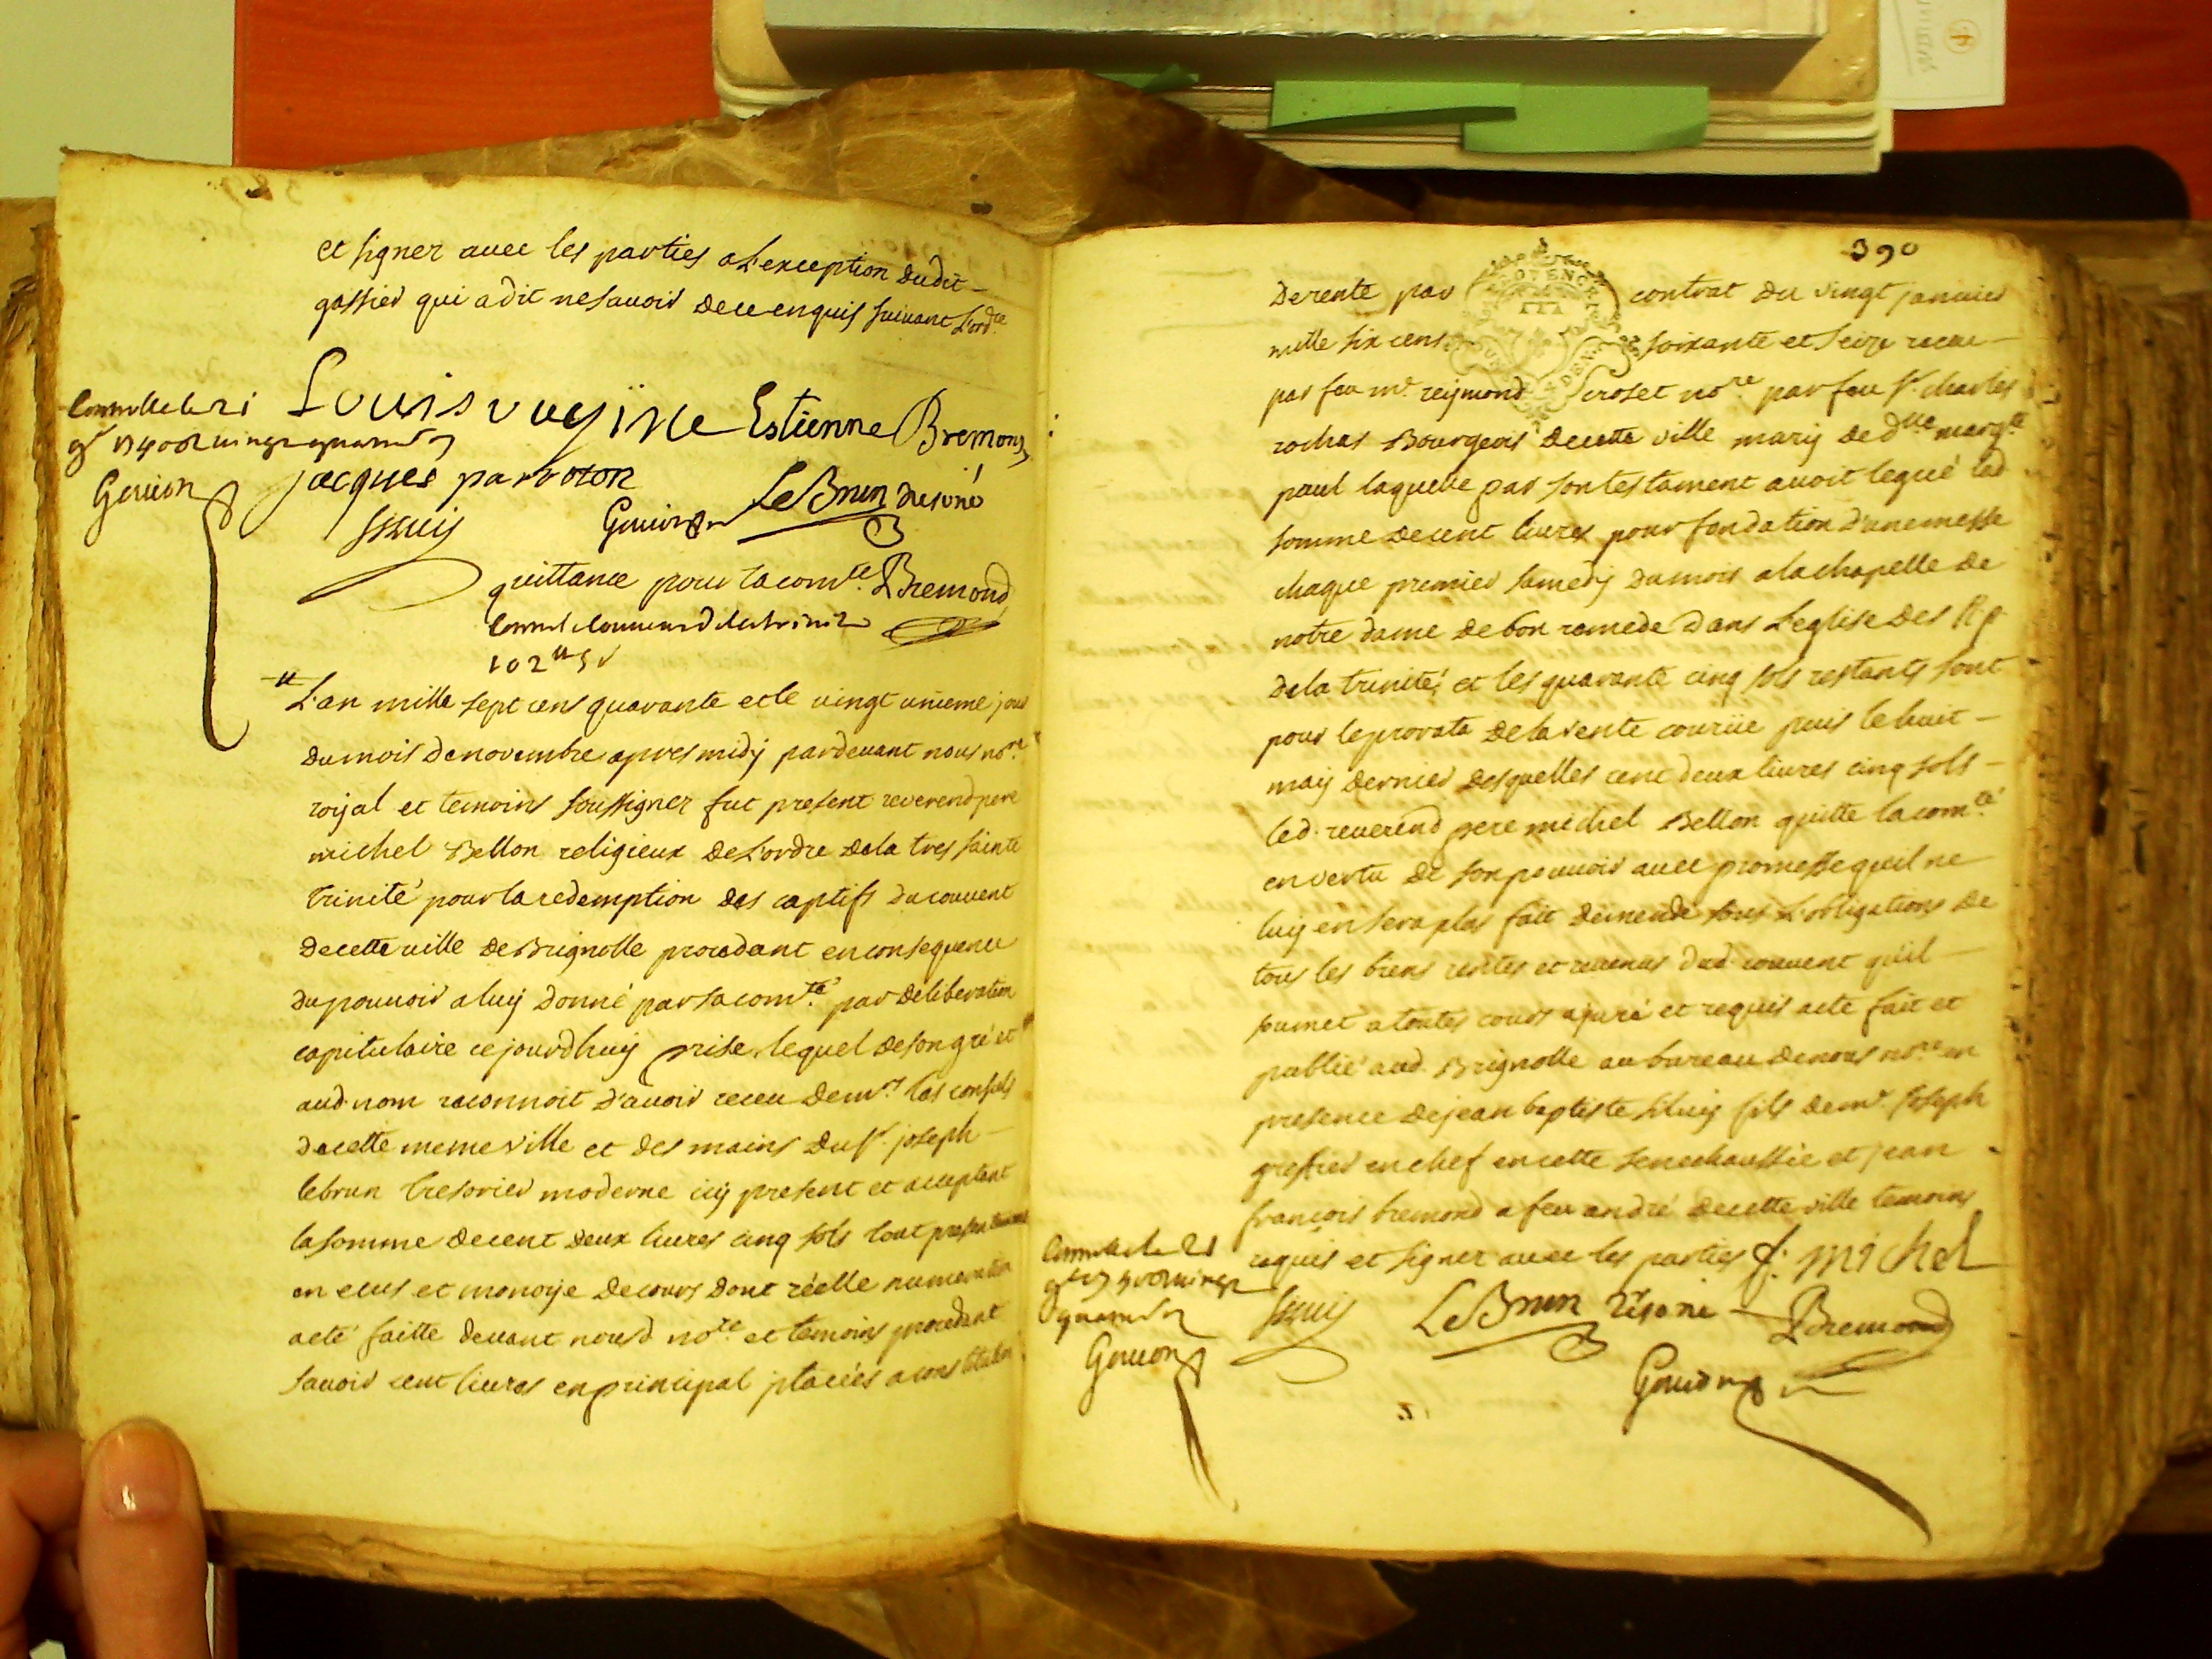 et signer avec les parties a l'exception dudit
gassier qui a dit ne savoir de ce enquis suivant l'ord.ce
Louis Estienne Bremond
Controlle le 21
jacques
Gouion
Gouion LeBrun
quittance pour la com.té Bremond
102 5
L'an mille sept cens quarante et le vingt unieme jour
du mois de novembre apres midy pardevant nous no.re
royal et temoins soussignez fut present reverend pere
michel Bellon religieux de l'ordre de la tres sainte
trinité pour la redemption des captifs du couvent
de cette ville de Brignolle procedant en consequence
du pouvoir a luy donné par sa com.té par deliberation
capitulaire ce jourdhuy prise lequel de son gré et
aud. nom reconnoit d'avoir receu de m.rs les consuls
de cette meme ville et des mains du s.r joseph
lebrun tresorier moderne icy present et acceptant
la somme de cent deux livres cinq sols tout presentement
en ecus et monoye de cours dont réelle numeration
acté faitte devant nousd. no.re et temoins procedant
savoir cent livres en principal placées a constitution
390
de rente par contrat du vingt janvier
mille six cens soixante et seize receu
par feu m.e reymond croset no.re par feu s.r charles
rochas Bourgeois de cette ville mary de d.lle marg.te
paul laquelle par son testament avoit legué lad.
somme de cent livres pour fondation d'une messe
chaque premier samedy du mois a la chapelle de
notre dame de bon remede dans l'eglise des R.p.
de la trinité, et les quarante cinq sols restants sont
pour le prorata de la rente courüe puis le huit
may dernier desquelles cent deux livres cinq sols
led. reverend pere michel Bellon quitte la com.té
en vertu de son pouvoir avec promesse quil ne
luy en sera plus fait demende sous l'obligations de
tous les biens rentes et revenus dud. couvent quil
soumet a toutes cours a juré et requis acte fait et
publié aud. Brignolle au bureau de nous no.re en
presence de jean baptiste fils de m.e joseph
greffier en chef en cette senechaussée et jean
françois bremond a feu andré de cette ville temoins
requis et signez avec les parties f. michel
Controlle le 21
LeBrun Bremond
Gouion
Gouion